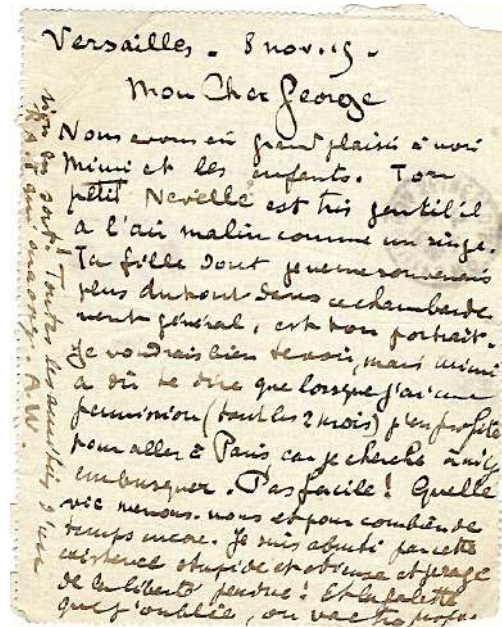 Versailles - 8 nov. 15 -
Mon Cher George
Nous avons eu grand plaisir à voir
Mimi et les enfants. Ton
petit Nevelle est très gentil il
a l'air malin comme un singe.
Ta fille dont je ne me souvenais
plus du tout dans ce chambarde
ment général, est ton portrait.
Je voudrais bien te voir, mais Mimi
a dû te dire que lorsque j'ai une
permission (tout les 2 mois) j'en profite
pour aller à Paris car je cherche à m'y
embusquer. Pas facile ! Quelle
vie menons-nous et pour combien de
temps encore. Je suis abruti par cette
existence stupide et odieuse et je rage
de la liberté perdue ! Et la galette
que j'oublie, on va être
Toutes les amitiés d'un
A.W.